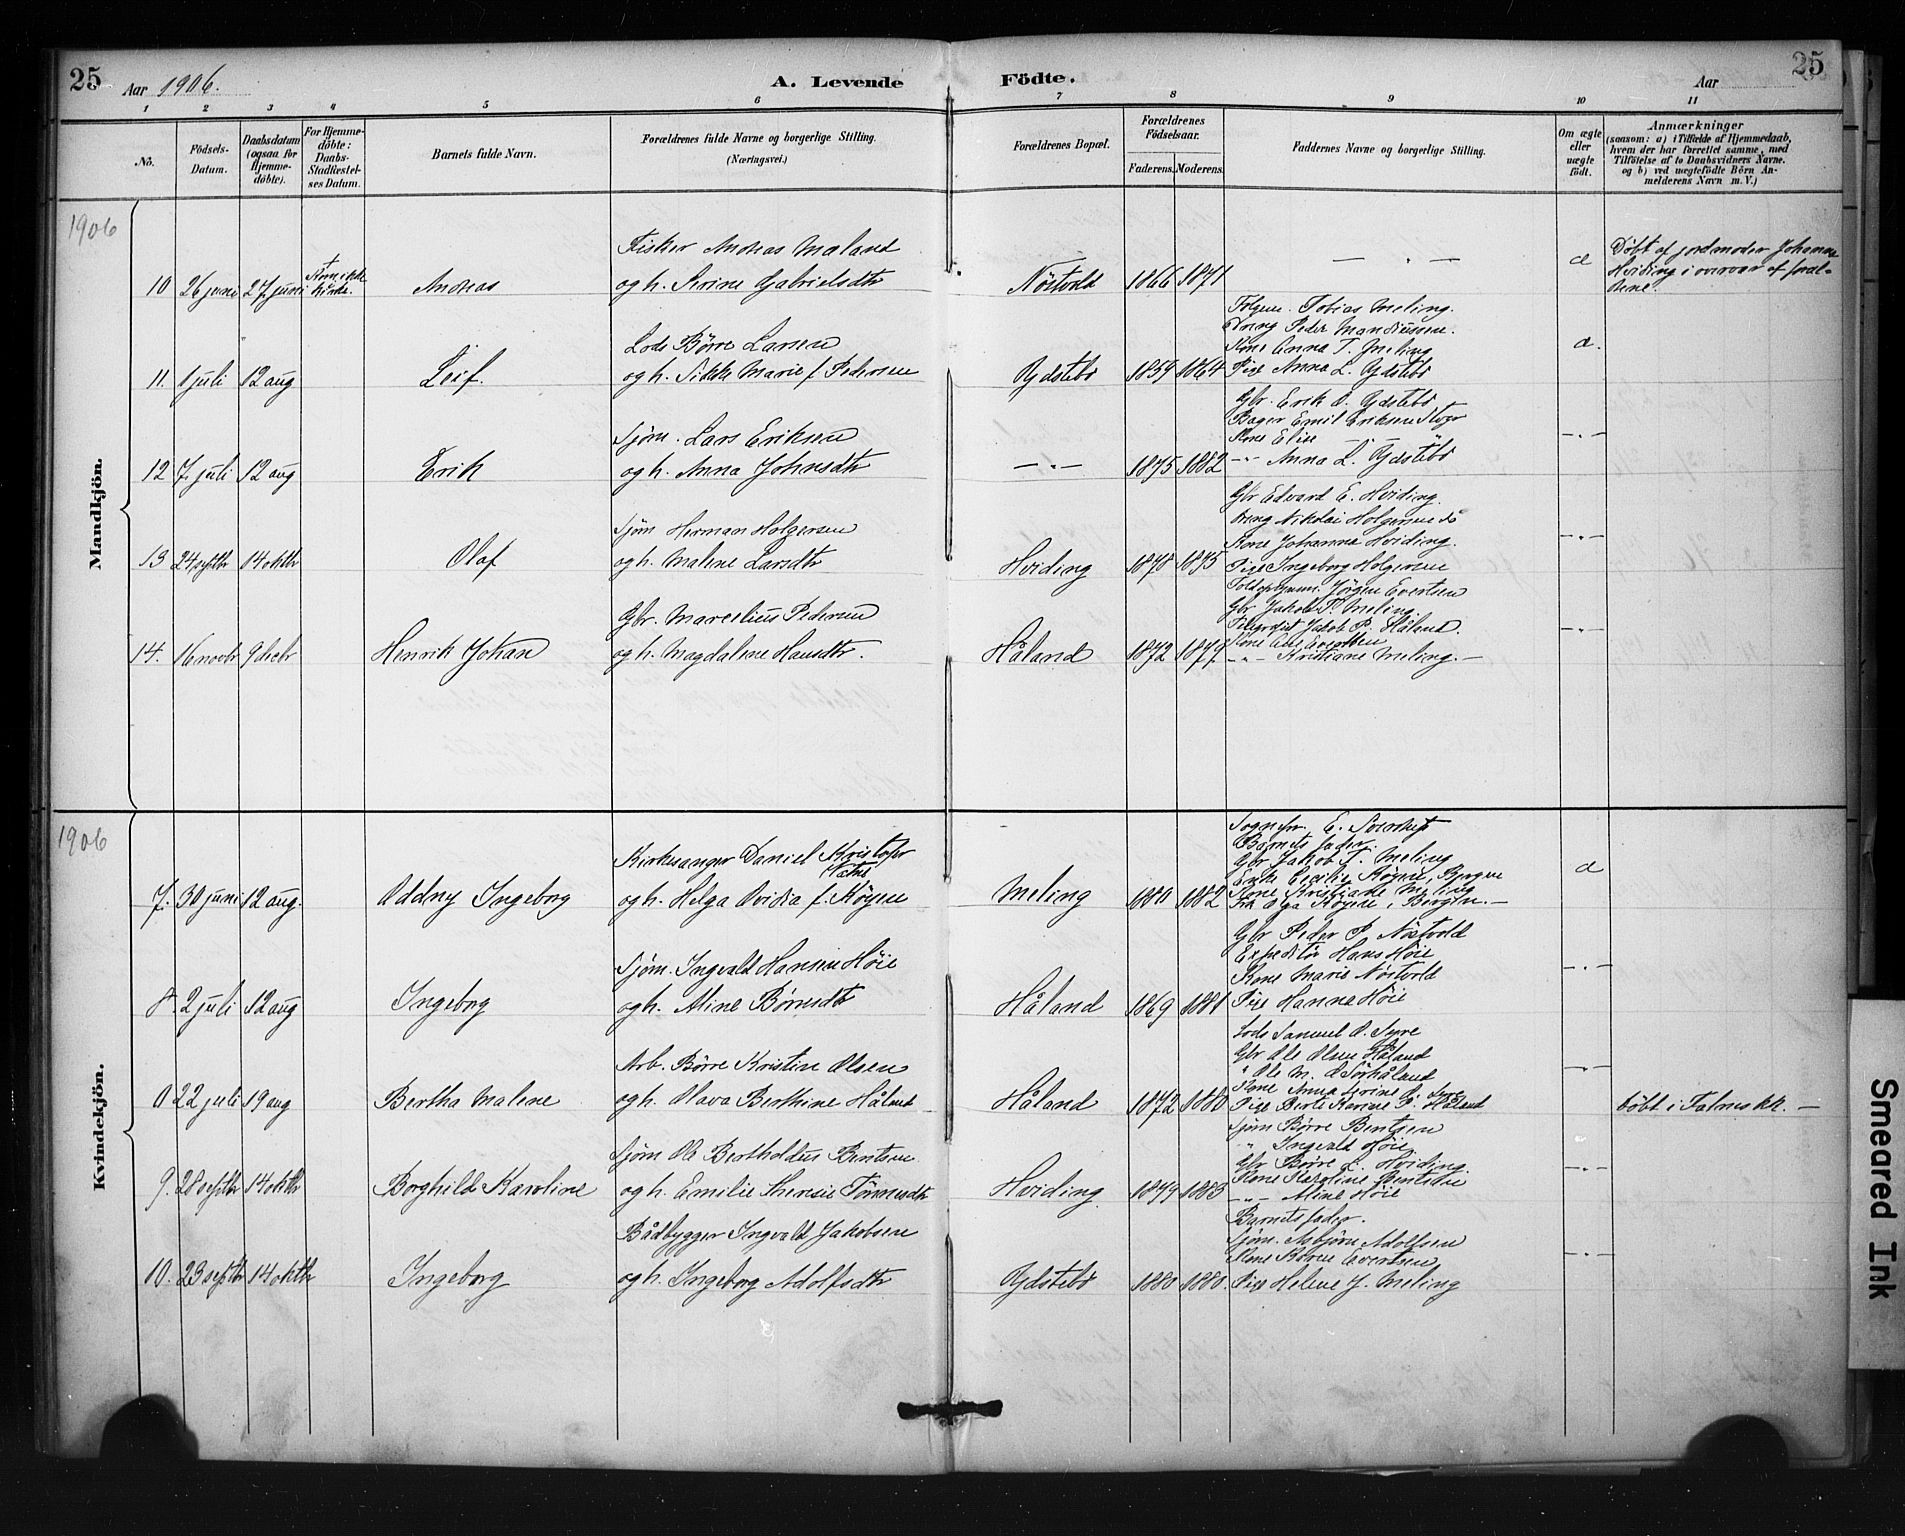 25
Aar 1906.
A. Levende Födte.
Aar
25
1 2 3 4 5 6 7 8 9 10 11
No.
Födsels-Datum.
Daabsdatum (ogsaa for Hjemme-döbte).
For Hjemme-döbte: Daabs-Stadfæstel-ses Datum.
Barnets fulde Navn.
Forældrenes fulde Navne og borgerlige Stilling.
(Næringsvei.)
Forældrenes Bopæl.
Forældrenes Födselsaar.
Faderens. Moderens.
Faddernes Navne og borgerlige Stilling.
Om ægte eller uægte født.
Anmærkninger
(saasom: a) i Tilfælde af Hjemmedaab,
hvem der har forrettet samme, med
Tilföielse af to Daabsvidners Navne.
og b) ved uægtefödte Börn An-
melderens Navn m. V.)
Mandkjön.
1906
Fisker Andreas Maland
10 26 juni 27 juni Andreas og h. Serine Gabrielsdtr Nöstvold 1866 1871 — " — æ
Döbt af jordmoder Johanne
Hviding i overvær af foræl-
drene.
Lods Börre Larsen
11. 1 juli 12 aug Leif. og h. Sikke Marie f. Pedersen Ydstebö 1859 1864
Tobias Meling.
Dreng Peder Mandiussen.
Kone Anna T. Meling
Pige Anna L. Ydstebö
æ.
Sjöm. Lars Eriksen
12 7 juli 12 aug Erik og h. Anna Johnsdtr — " — 1875 1882
Gbr. Erik O. Ydstebö
Bager Emil Eriksen
Kone Elise — " —
— " — Anna L. Ydstebö
— " —
Sjöm Herman Holgersen
13 24 septbr 14 oktbr Olaf og h. Malene Larsdtr Hviding 1878 1875
Gbr Edvard E. Hviding.
Dreng Nikolai Holgersen
Kone Johanna Hviding.
Pige Ingeborg Holgersen
— " —
Gbr. Marcelius Pedersen
14. 16 novbr 9 decbr Henrik Johan og h. Magdalene Hansdtr. Håland 1872 1877
Jörgen Evertsen
Gbr Jakob T. Meling.
Jakob P. Håland.
Kone Evertsen
— " — Kristiane Meling. —
— " —
Kvindekjön.
1906
Kirkesanger Daniel Kristofer
7. 30 juni 12 aug. Oddny Ingeborg og h. Helga Ovidia f. Köyen Meling 1880 1882
Sognepr. E. Sverdrup
Barnets fader.
Gbr Jakob T. Meling
Enke Cecilie Köyen, Bergen
Kone Kristiane Meling
Frk Olga Köyen i Bergen. —
æ
Sjöm. Ingvald Hansen Höie
8. 2 juli 12 aug Ingeborg og h. Aline Börresdtr Håland 1869 1881
Gbr Peder P. Nöstvold
Expeditör Hans Höie
Kone Marie Nöstvold
Pige Hanna Höie
— " —
Arb. Börre Kristin Olsen
22 juli 19 aug Bertha Malene og h. Olava Berthine Håland Håland 1872 1880
Lods Samuel O. Syre
Gbr Ole Olsen Håland
" Ole M. Sörhåland
Kone Anna Serine Syre
Pige Berte Karine Håland
— " —
döbt i Falnes kk. —
Sjöm Ole Bertholdus Bentsen
9. 28 septbr 14 oktbr Borghild Karoline og h. Emilie Theresie Tönnesdtr Hviding. 1879 1883
Sjöm Börre Bentsen
" Ingvald Höie
Gbr Börre L. Hviding.
Kone Karoline Bentsen
— " — Aline Höie
— " —
Bådbygger Ingvald Jakobsen
10. 23 septbr 14 oktbr Ingeborg og h. Ingeborg Adolfsdtr Ydstebö 1880 1880.
Barnets fader.
Sjöm. Asbjörn Adolfsen
Kone Evertsen
Pige Helene J. Meling
— " —
Smeared Ink